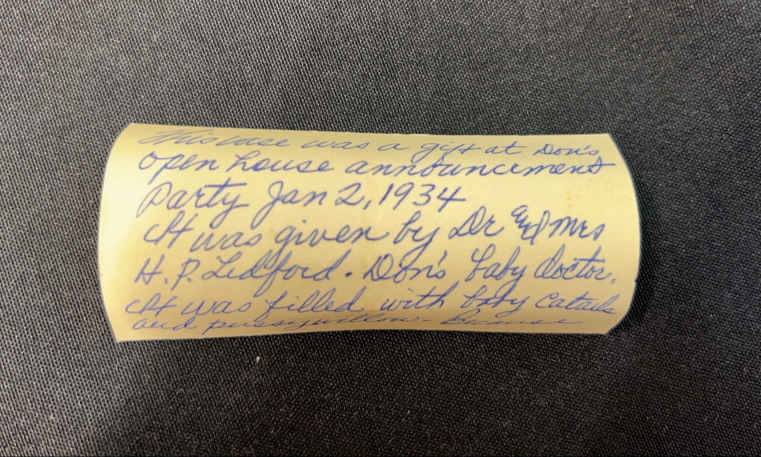 This vase was a gift at Don's
open house announcement
Party Jan 2, 1934
It was given by Dr and Mrs
H. P. Ledford. Don's baby doctor.
It was filled with baby catails
and pussywillow.